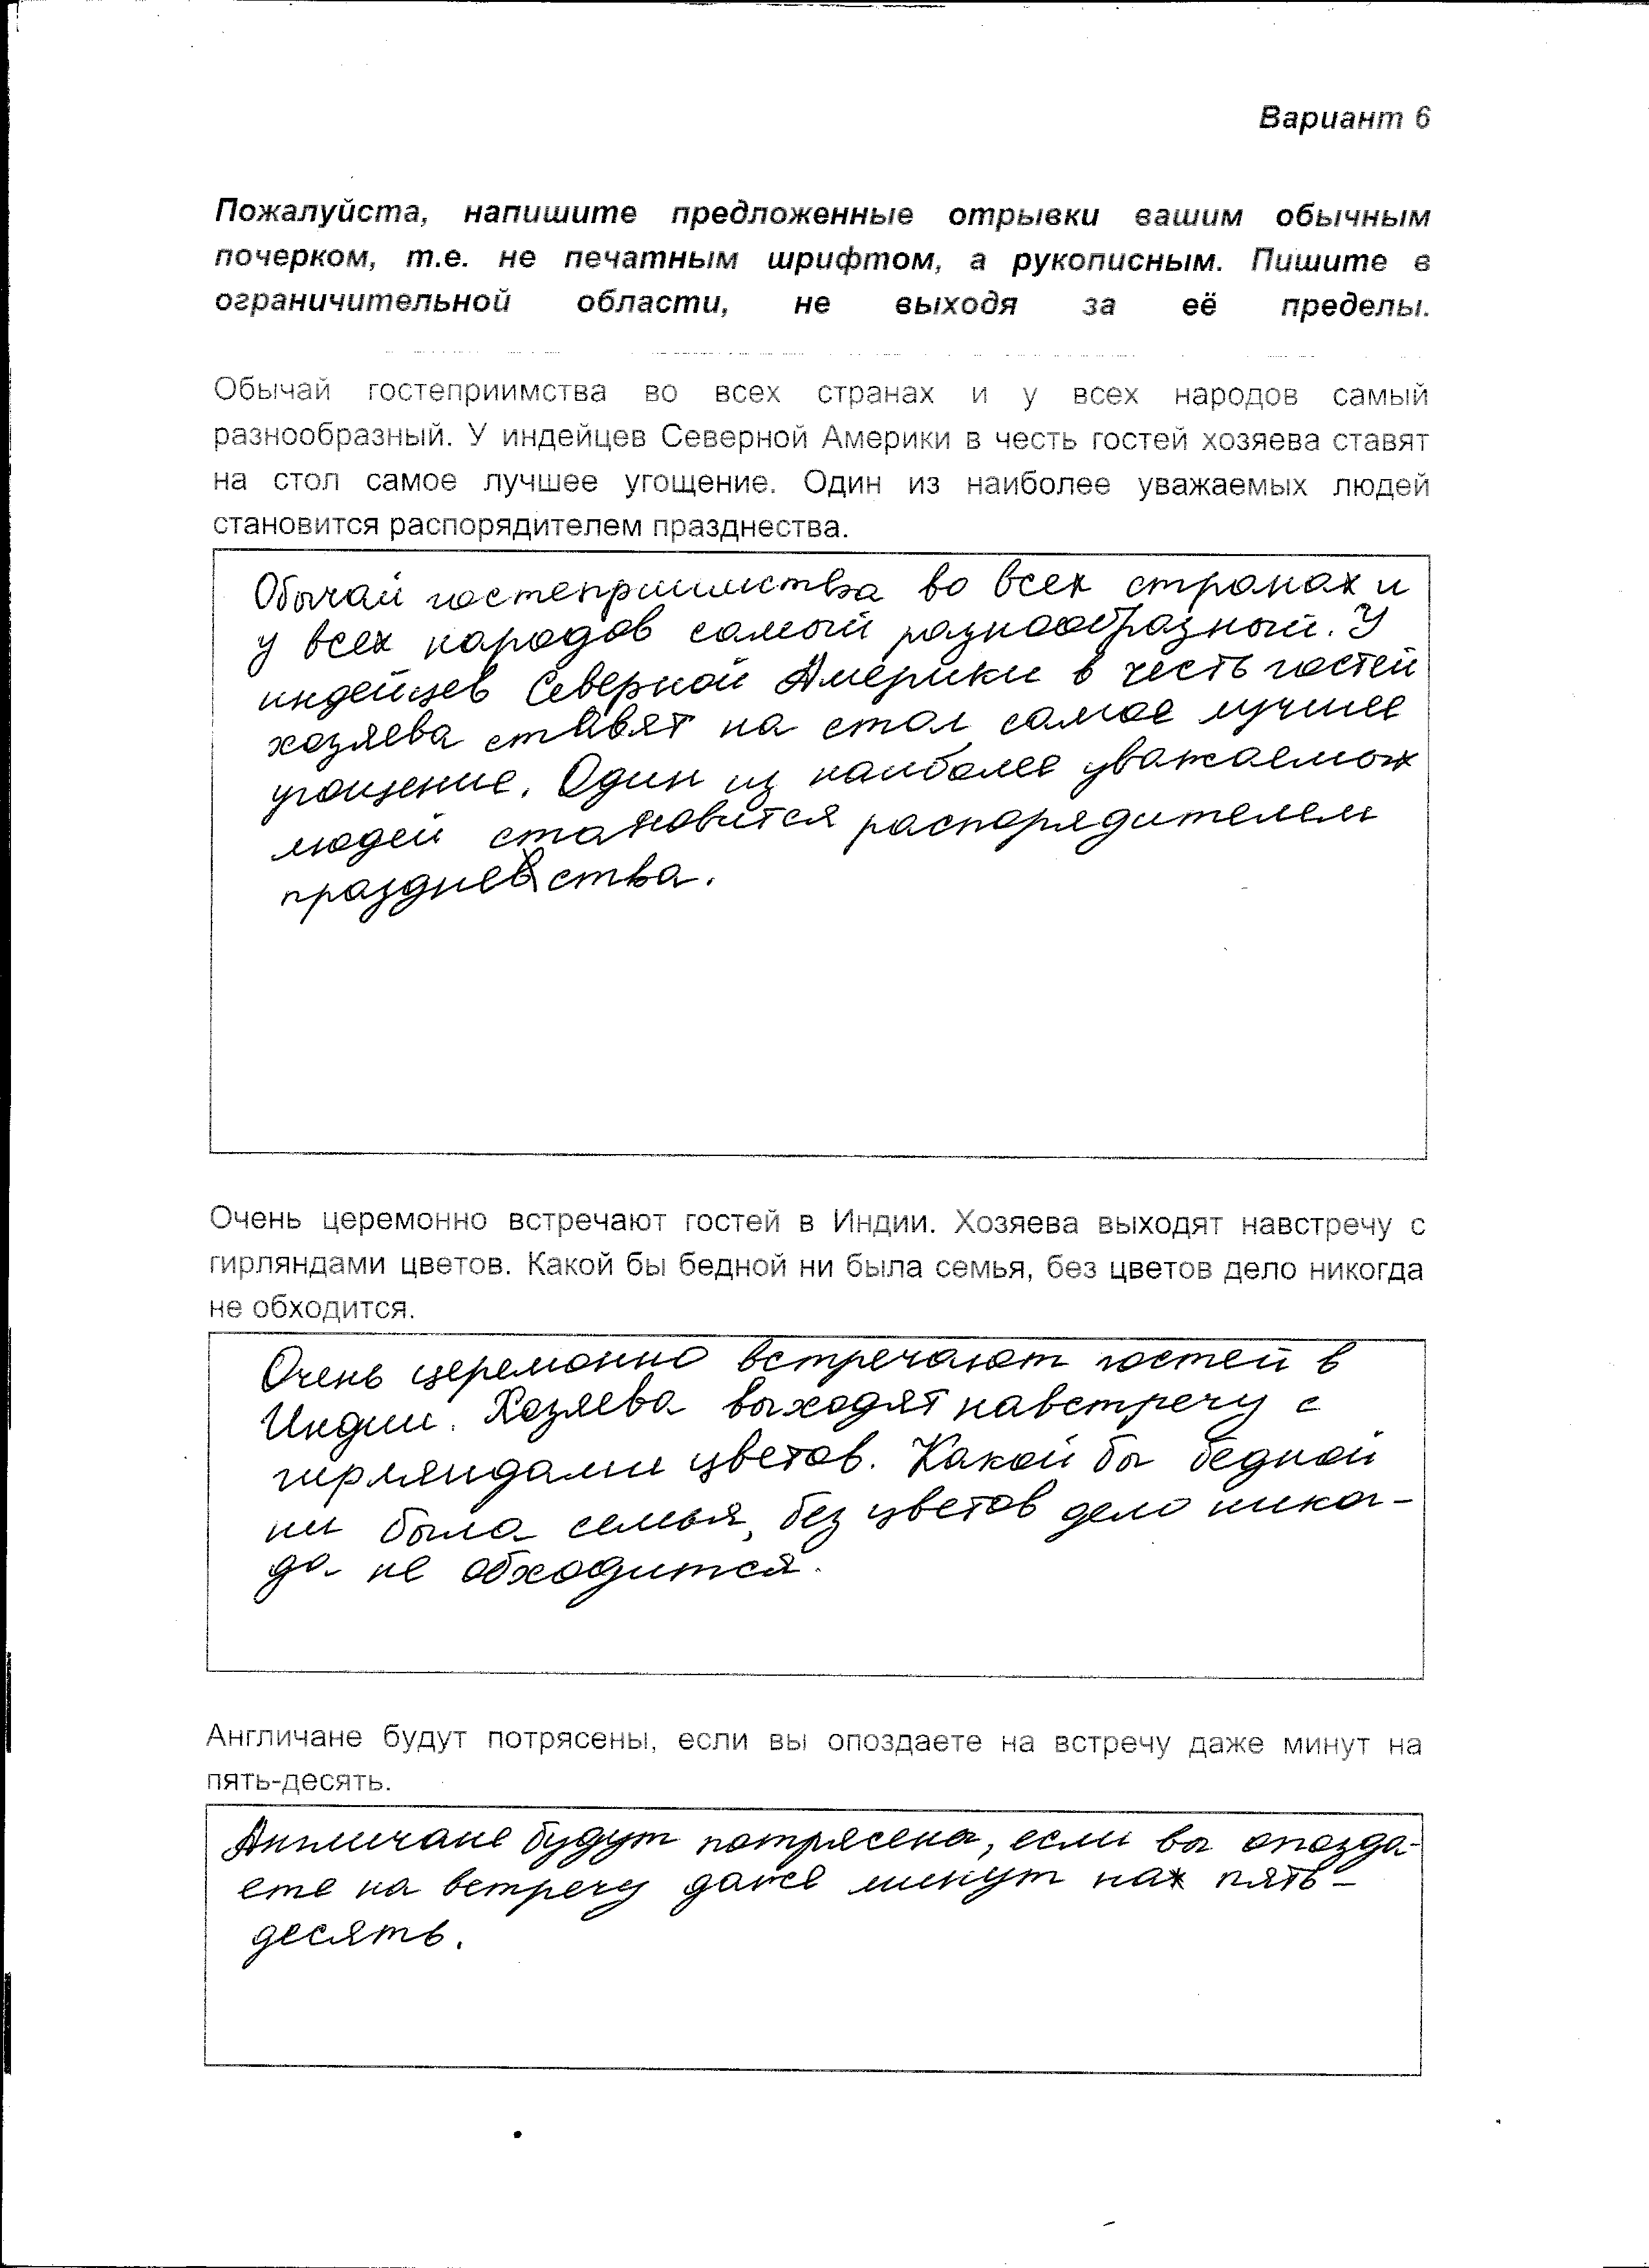 Вариант 6
Пожалуйста, напишите предложенные отрывки вашим обычным
почерком, т.е. не печатным шрифтом, а рукописным. Пишите в
ограничительной области, не выходя за её пределы.
Обычай гостеприимства во всех странах и у всех народов самый
разнообразный. У индейцев Северной Америки в честь гостей хозяева ставят
на стол самое лучшее угощение. Один из наиболее уважаемых людей
становится распорядителем празднества.
Обычай гостеприимства во всех странах и
у всех народов самый разнообразный. У
индейцев Северной Америки в честь гостей
хозяева ставят на стол самое лучшее
угощение. Один из наиболее уважаемых
людей становится распорядителем
празднества.
Очень церемонно встречают гостей в Индии. Хозяева выходят навстречу с
гирляндами цветов. Какой бы бедной ни была семья, без цветов дело никогда
не обходится.
Очень церемонно встречают гостей в
Индии. Хозяева выходят навстречу с
гирляндами цветов. Какой бы бедной
ни была семья, без цветов дело никог-
да не обходится.
Англичане будут потрясены, если вы опоздаете на встречу даже минут на
пять-десять.
Англичане будут потрясены, если вы опозда-
ете на встречу даже минут на пять-
десять.